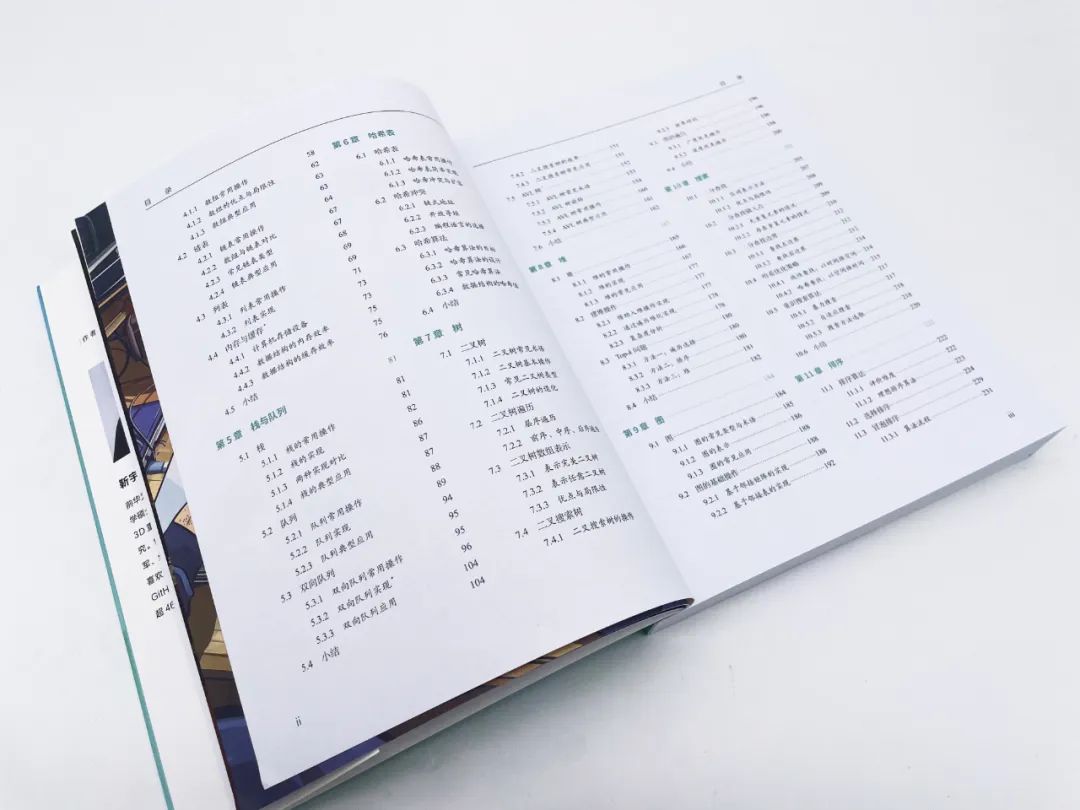 目 录
4.1.1 数组常用操作 58
4.1.2 数组的优点与局限性 62
4.1.3 数组典型应用 63
4.2 链表 63
4.2.1 链表常用操作 64
4.2.2 数组与链表对比 67
4.2.3 常见链表类型 67
4.2.4 链表典型应用 68
4.3 列表 69
4.3.1 列表常用操作 69
4.3.2 列表实现 71
4.4 内存与缓存* 73
4.4.1 计算机存储设备 73
4.4.2 数据结构的内存效率 75
4.4.3 数据结构的缓存效率 75
4.5 小结 76
第 5 章 栈与队列 81
5.1 栈 81
5.1.1 栈的常用操作 81
5.1.2 栈的实现 82
5.1.3 两种实现对比 86
5.1.4 栈的典型应用 87
5.2 队列 87
5.2.1 队列常用操作 88
5.2.2 队列实现 89
5.2.3 队列典型应用 94
5.3 双向队列 95
5.3.1 双向队列常用操作 95
5.3.2 双向队列实现* 96
5.3.3 双向队列应用 104
5.4 小结 104
第 6 章 哈希表
6.1 哈希表
6.1.1 哈希表常用操作
6.1.2 哈希表简单实现
6.1.3 哈希冲突与扩容
6.2 哈希冲突
6.2.1 链式地址
6.2.2 开放寻址
6.2.3 编程语言的选择
6.3 哈希算法
6.3.1 哈希算法的目标
6.3.2 哈希算法的设计
6.3.3 常见哈希算法
6.3.4 数据结构的哈希值
6.4 小结
第 7 章 树
7.1 二叉树
7.1.1 二叉树常见术语
7.1.2 二叉树基本操作
7.1.3 常见二叉树类型
7.1.4 二叉树的退化
7.2 二叉树遍历
7.2.1 层序遍历
7.2.2 前序、中序、后序遍历
7.3 二叉树数组表示
7.3.1 表示完美二叉树
7.3.2 表示任意二叉树
7.3.3 优点与局限性
7.4 二叉搜索树
7.4.1 二叉搜索树的操作
ii
目 录
7.4.2 二叉搜索树的效率
7.4.3 二叉搜索树常见应用
7.5 AVL 树*
7.5.1 AVL 树常见术语
7.5.2 AVL 树旋转
7.5.3 AVL 树常用操作
7.5.4 AVL 树典型应用
7.6 小结
第 8 章 堆
8.1 堆
8.1.1 堆的常用操作
8.1.2 堆的实现
8.1.3 堆的常见应用
8.2 建堆操作
8.2.1 借助入堆操作实现
8.2.2 通过遍历堆化实现
8.2.3 复杂度分析
8.3 Top-k 问题
8.3.1 方法一：遍历选择
8.3.2 方法二：排序
8.3.3 方法三：堆
8.4 小结 182
第 9 章 图
9.1 图 184
9.1.1 图的常见类型与术语 185
9.1.2 图的表示 186
9.1.3 图的常见应用 188
9.2 图的基础操作 188
9.2.1 基于邻接矩阵的实现 188
9.2.2 基于邻接表的实现 192
9.2.3 效率对比
9.3 图的遍历
9.3.1 广度优先遍历
9.3.2 深度优先遍历
9.4 小结
第 10 章 搜索
10.1 二分查找
10.1.1 区间表示方法
10.1.2 优点与局限性
10.2 二分查找插入点
10.2.1 无重复元素的情况
10.2.2 存在重复元素的情况
10.3 二分查找边界
10.3.1 查找左边界
10.3.2 查找右边界
10.4 哈希优化策略
10.4.1 线性查找：以时间换空间
10.4.2 哈希查找：以空间换时间
10.5 重识搜索算法
10.5.1 暴力搜索
10.5.2 自适应搜索
10.5.3 搜索方法选取
10.6 小结
第 11 章 排序
11.1 排序算法 222
11.1.1 评价维度 222
11.1.2 理想排序算法 223
11.2 选择排序 224
11.3 冒泡排序 229
11.3.1 算法流程 231
iii
作者
靳宇
前华
学硕
3D
究。
军、
喜欢
GitH
超 4